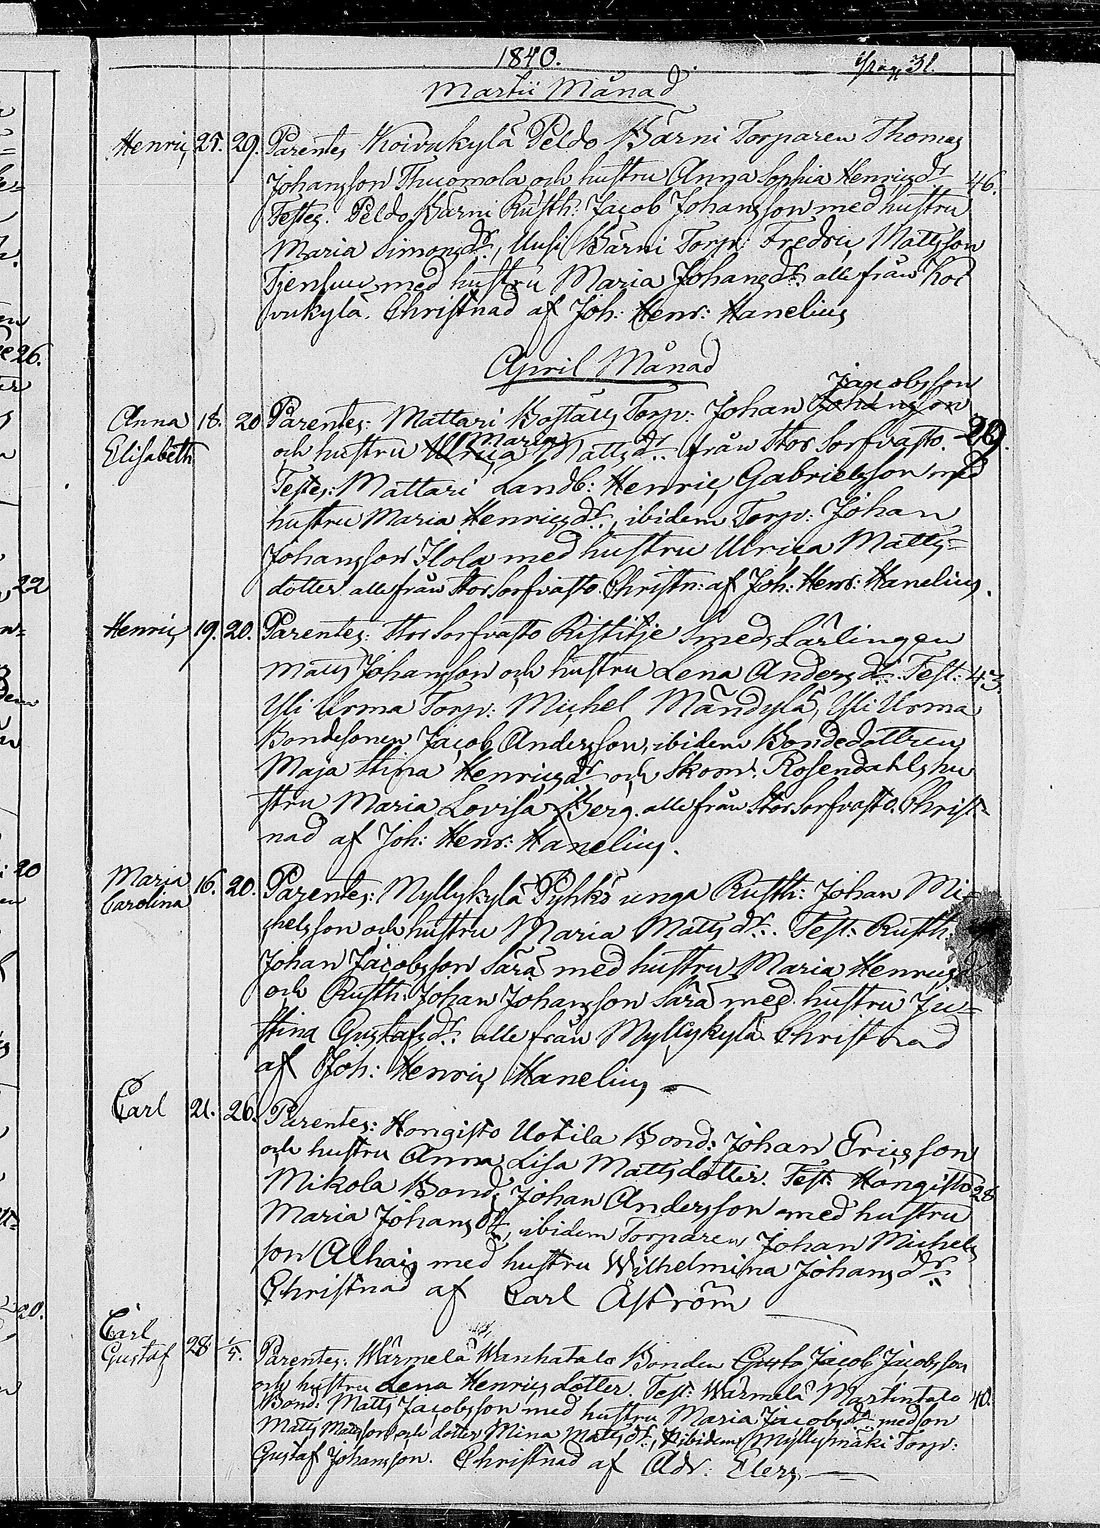 1840. pag 31.
Martii Månad
Henric 25. 29. Parentes Koivukylä Peldo Bärni Torparen Thomas
Johansson Thuomola och hustru Anna Sophia Henricsdr 46.
Testes: Peldo Bärni Rusth: Jacob Johansson med hustru
Maria Simonsdr, Uusi Bärni Torp: Fredric Mattsson
med hustru Maria Johansdr alle från Koi
vukylä. Christnad af Joh: Henr: Hanelius
April Månad
Jacobsson
Anna 18. 20 Parentes: Mattari Boställs Torp: Johan Johansson
Elisabeth och hustru Ulrica Maria Mattsdr. från Stor Sorfvasto. 29.
Testes: Mattari Landb: Henric Gabrielsson med
hustru Maria Henricsdr, ibidem Torp: Johan
Johansson Ilola med hustru Ulrica Matts=
dotter alle från Stor Sorfvasto. Christn: af Joh: Henr: Hanelius.
Henric 19. 20. Parentes: Stor Sorfvasto Ristitje Smeds Lärlingen
Matts Johansson och hustru Lena Andersdr. Test: 43.
Yli Urma Torp: Michel Mändylä, Yli Urma
Bondesonen Jacob Andersson, ibidem Bondedottren
Maja Stina Henricsdr och Skom: Rosendahls hu
stru Maria Lovisa Berg. alle från Stor Sorfvasto. Christ-
nad af Joh: Henr: Hanelius.
Maria 16. 20. Parentes: Myllykylä Pyhkö unga Rusth: Johan Mi-
Carolina chelsson och hustru Maria Mattsdr. Test: Rusth:
Johan Jacobsson Särä med hustru Maria Henricsd
och Rusth: Johan Johansson Särä med hustru Ju=
stina Gustafsdr. alle från Myllykylä Christnad
af Joh: Henric Hanelius
Carl 21. 26. Parentes: Hongisto Uotila Bond: Johan Ericsson
och hustru Anna Lisa Mattsdotter. Test: Hongisto 28
Mikola Bond: Johan Andersson med hustru
Maria Johansdr, ibidem Torparen Johan Michels
son Alhais med hustru Wilhelmina Johansdr.
Christnad af Carl Åström
Carl
Gustaf 28 1/5. Parentes: Wärmelä Wanhatalo Bonden Gusta Jacob Jacobsson
och hustru Lena Henricsdotter. Test: Wärmelä Martintalo 40.
Bond: Matts Jacobsson med hustru Maria Jacobsdr med son
Matts Mattsson och dotter Mina Mattsdr, ibidem Myllymäki Torp:
Gustaf Johansson. Christnad af Adr: Elers